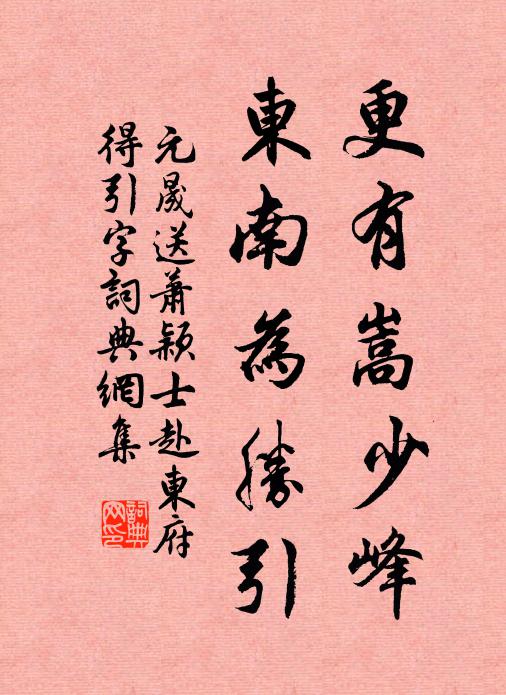 更有嵩少峰
東南為勝引
元晟送蕭颖士赴東府
得引字詞典網集
詞典网印